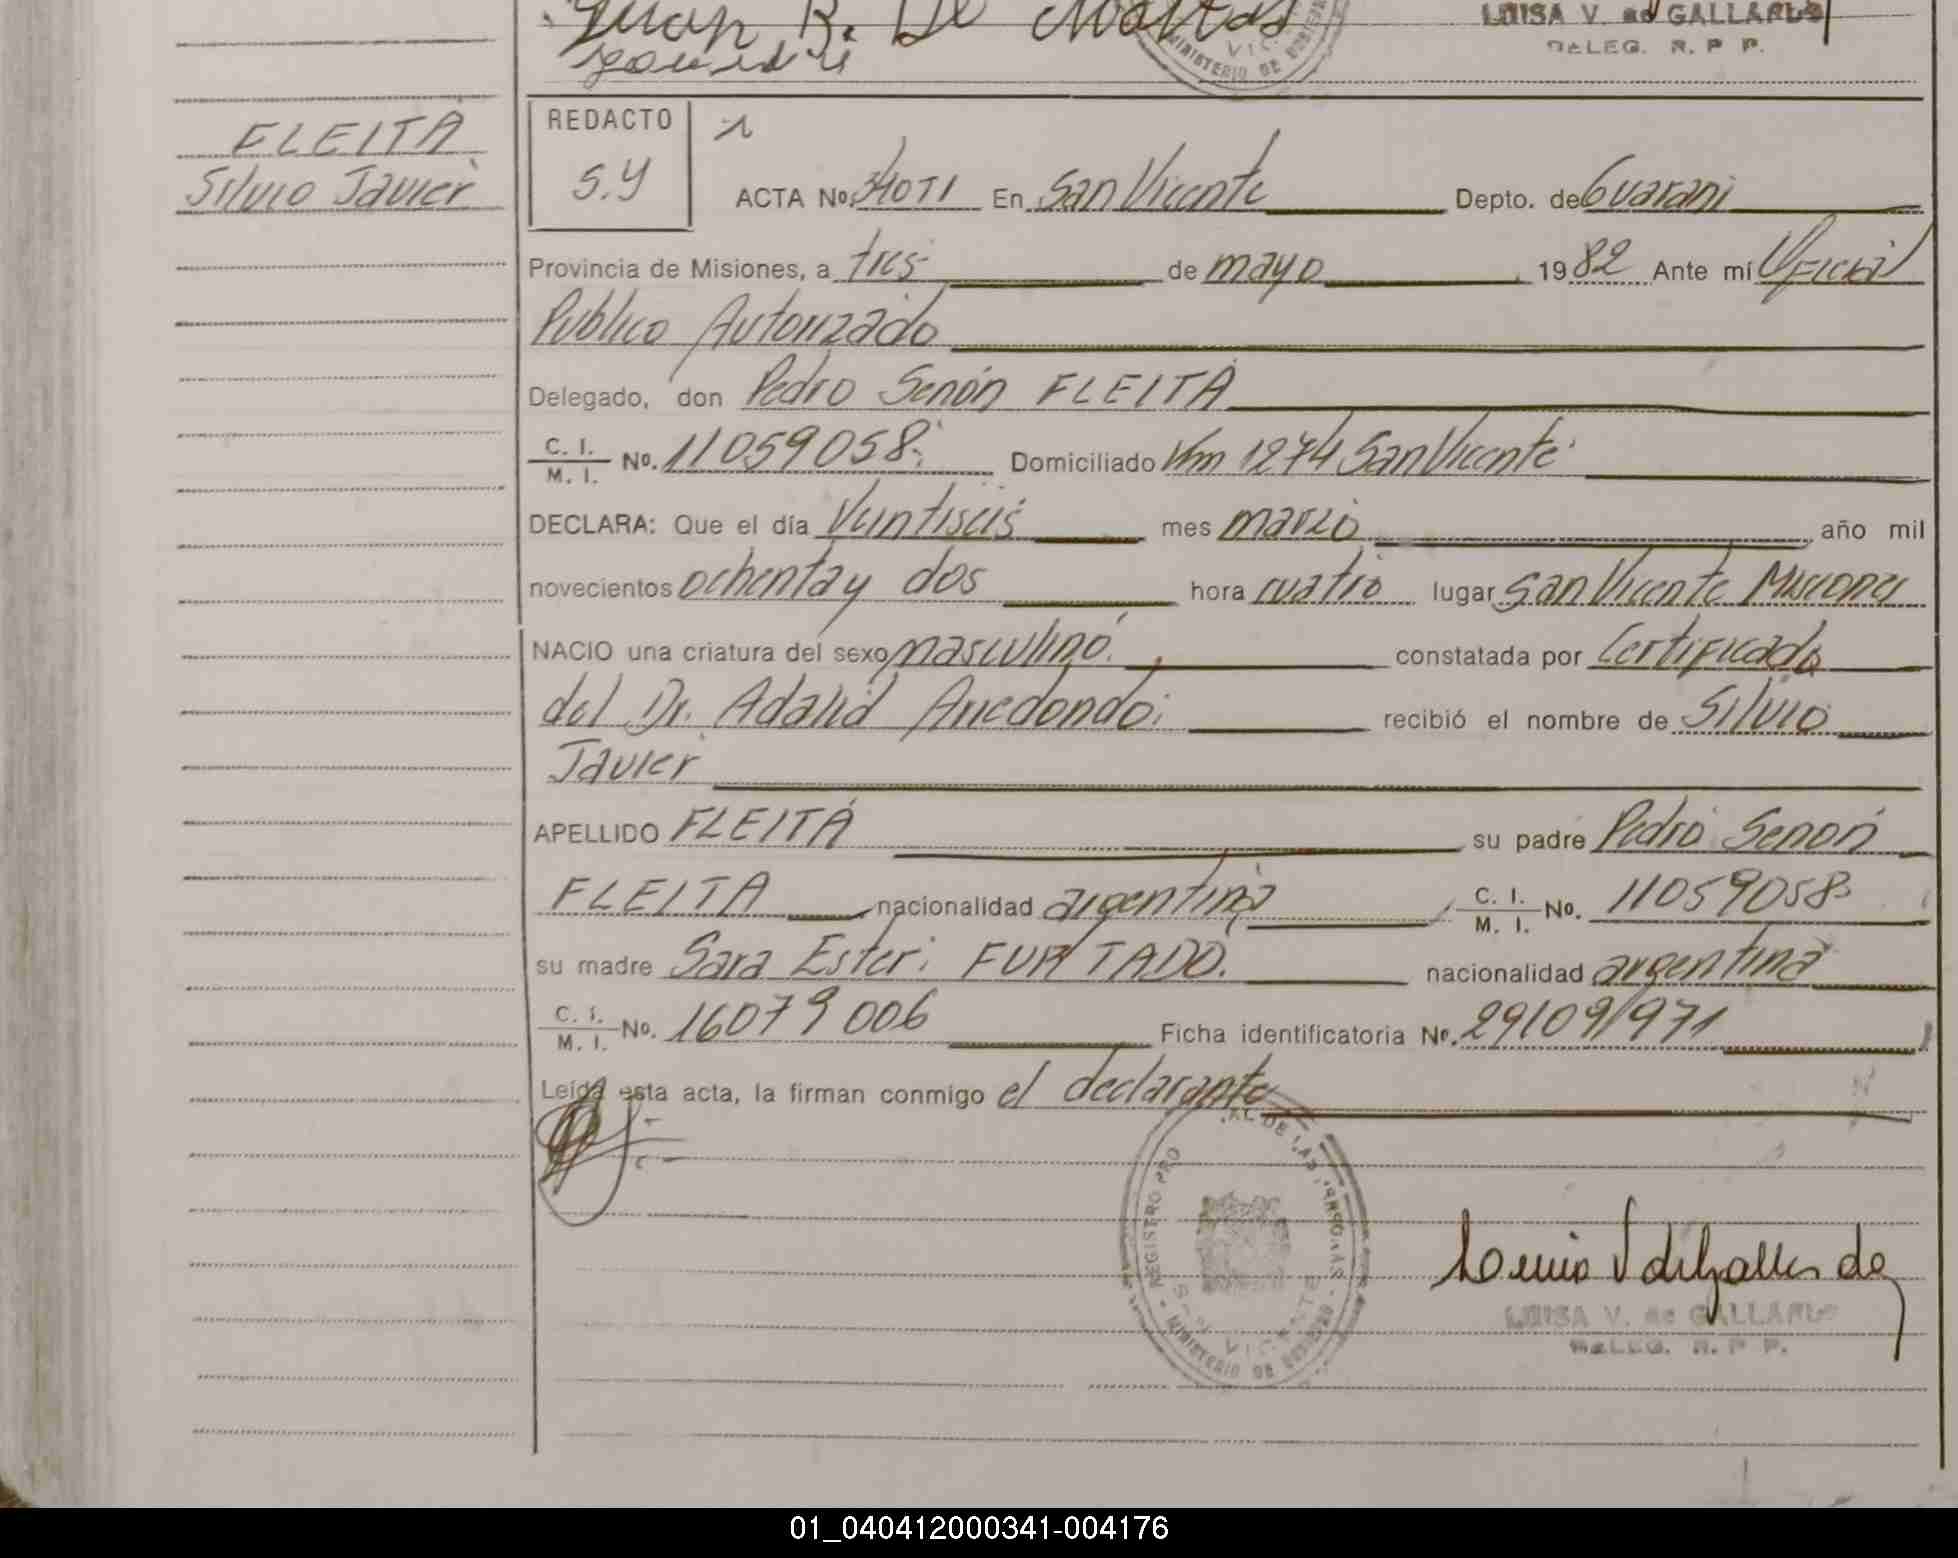 Juan R. De
LUISA V. de GALLARDO
DELEG. R. P. P.
FLEITA
Silvio Javier
REDACTO
S.Y
ACTA Nº 340TI En San Vicente Depto. de Guarani
Provincia de Misiones, a tres de mayo 1982 Ante mí Oficial
Publico Autorizado
Delegado, don Pedro Senón FLEITA
C. I. / M. I. Nº. 11059058 Domiciliado Km 1274 San Vicente
DECLARA: Que el día Veintiseis mes marzo año mil
novecientos ochenta y dos hora cuatro lugar San Vicente Misiones
NACIO una criatura del sexo masculino. constatada por Certificado
del Dr. Adalid Arredondo recibió el nombre de Silvio
Javier
APELLIDO FLEITA su padre Pedro Senon
FLEITA nacionalidad argentina C. I. / M. I. Nº. 11059058
su madre Sara Ester FURTADO. nacionalidad argentina
C. I. / M. I. Nº. 16079006 Ficha identificatoria Nº. 29/09/971
Leída esta acta, la firman conmigo el declarante
REGISTRO PRO DE LAS PERSONAS - MINISTERIO DE GOBIERNO
SAN VICENTE
LUISA V. de GALLARDO
DELEG. R. P. P.
01_040412000341-004176